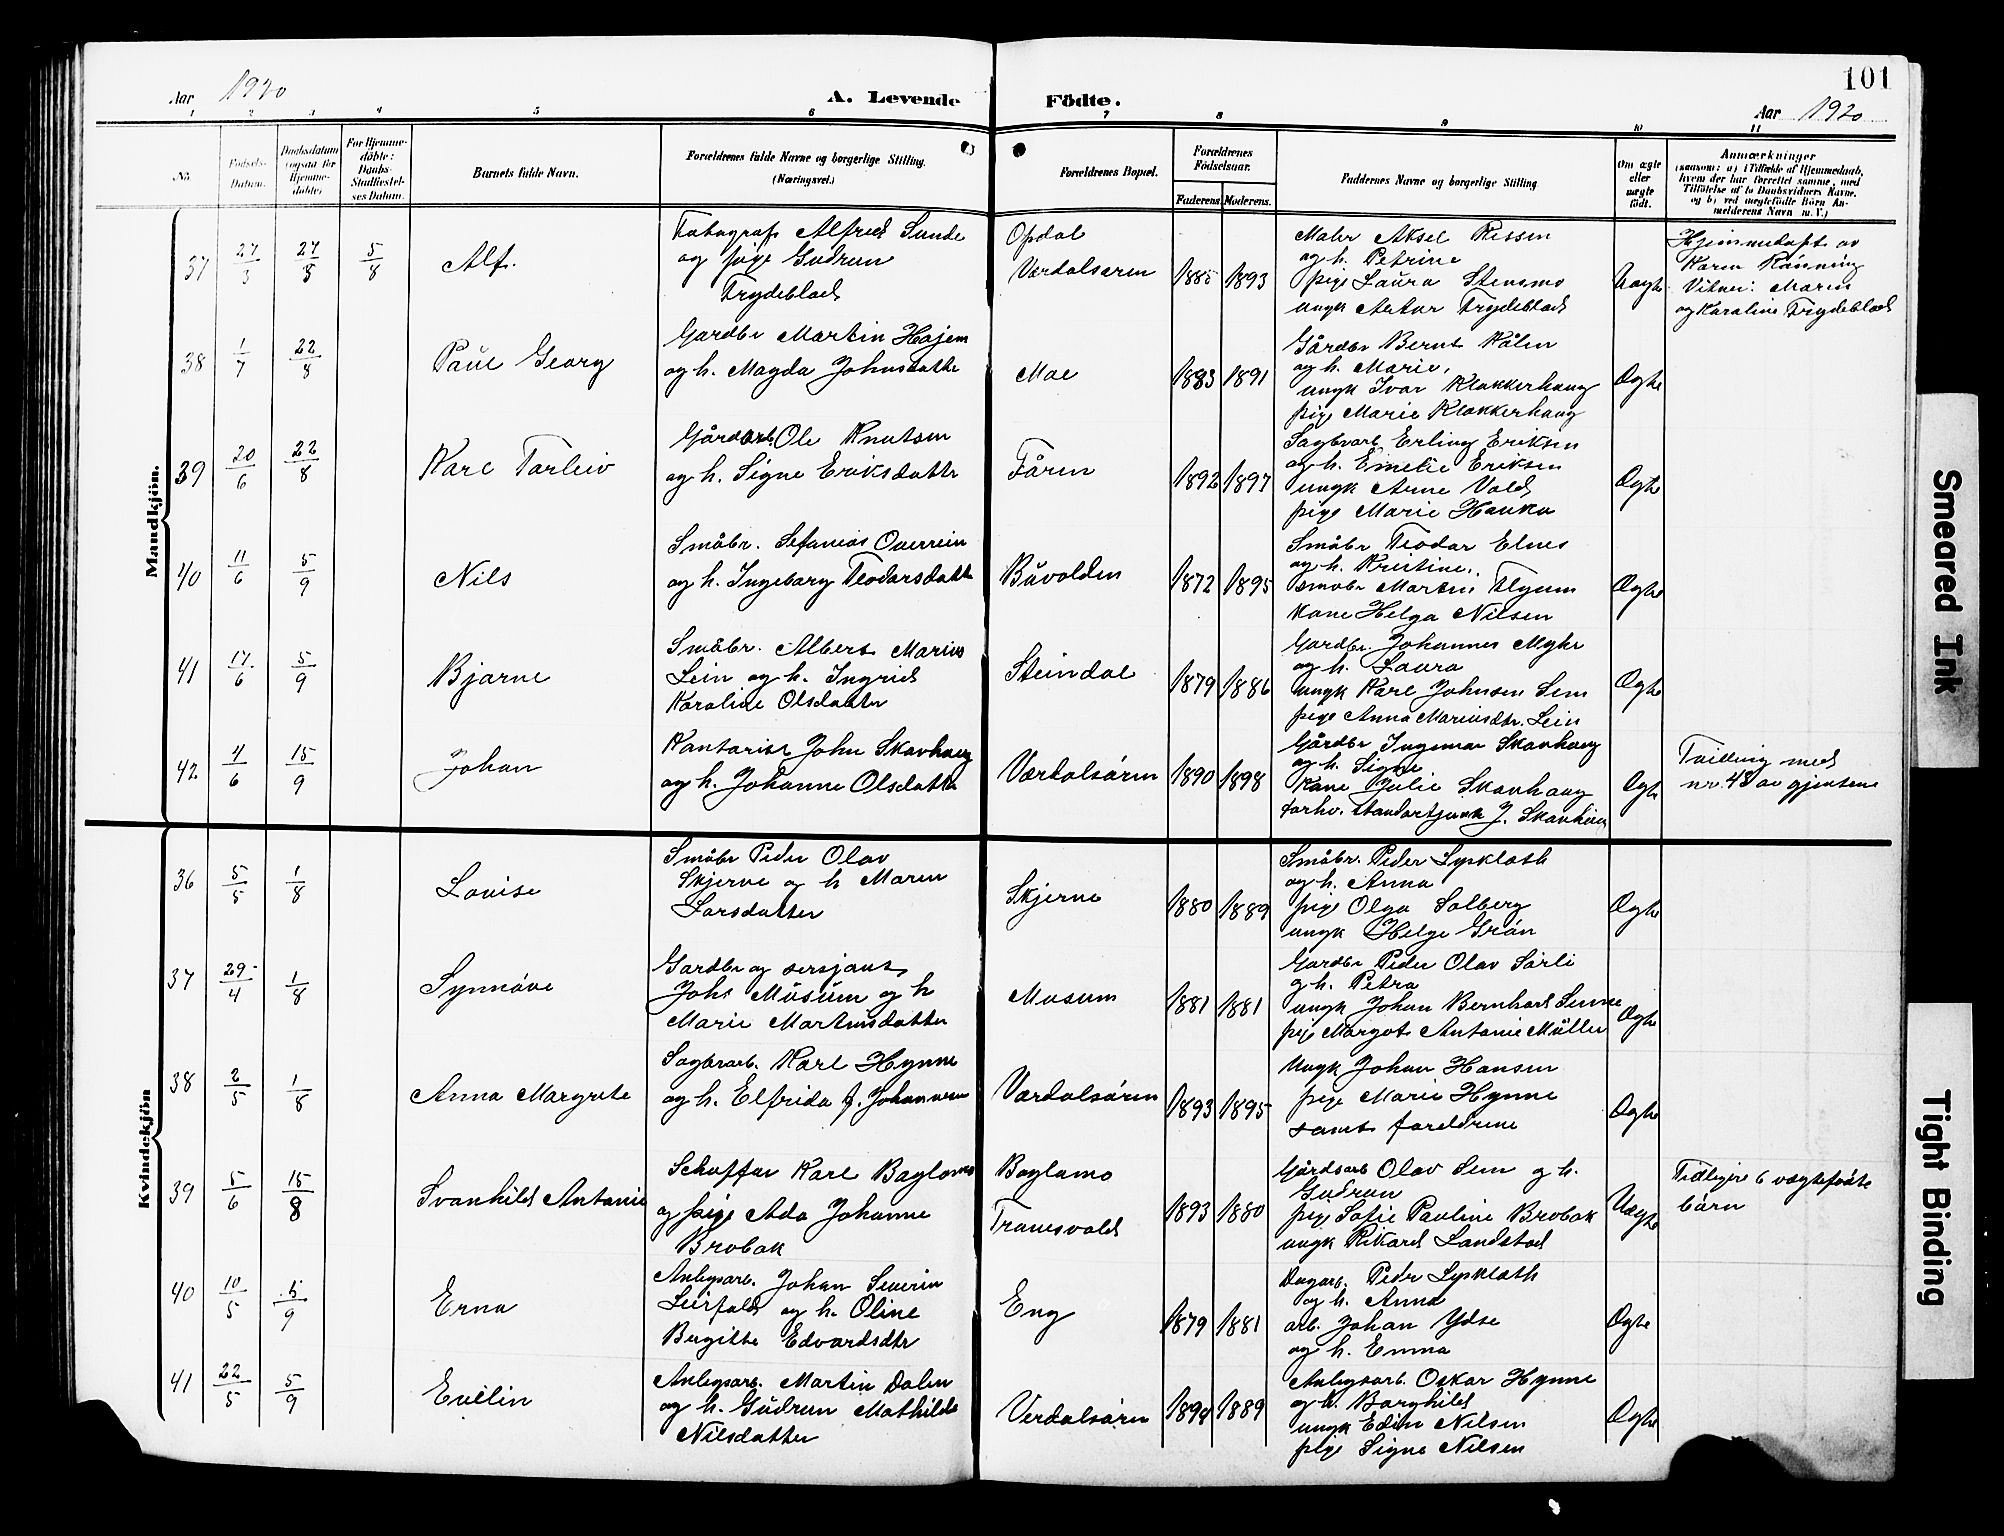 101
Aar 1920
A. Levende
Födte.
Aar 1920
1 2 3 4 5 6 7 8 9 10 11
No.
Fødsels-Datum.
Daabsdatum (ogsaa for Hjemme-døbte)
For Hjemme-døbte: Daabs-Stadfæstel-ses Datum.
Barnets fulde Navn.
Forældrenes fulde Navne og borgerlige Stilling.
(Næringsvei.)
Forældrenes Bopæl.
Forældrenes Fødselsaar.
Faderens. Moderens.
Faddernes Navne og borgerlige Stilling
Om ægte eller uægte født.
Anmærkninger
(saasom: a) i Tilfælde af Hjemmedaab,
hvem der har forrettet samme, med
Tilføielse af to Daabsvidners Navne,
og b) ved uægtefødte Börn An-
melderens Navn m. V.)
Mandkjön.
37 27/3 27/3 5/8 Alf.
Fotograf Alfred Sunde
og pige Gudrun
Frydeblad
Opdal
Værdalsøren
1885 1893
Maler Aksel Rissen
og h. Petrine
pige Laura Stensmo
ungk Artur Frydeblad
Uægte
Hjemmedøpt av
Karen Rønning
Vitner: Maren
og Karoline Frydeblad
38 1/7 22/8 Paul Georg
Gardbr Martin Hojem
og h. Magda Johnsdatter
Moe
1883 1891
Gårdbr Bernt Kålen
og h. Marie,
ungk Ivar Klokkerhaug
pige Marie Klokkerhaug
Ægte
39 20/6 22/8 Karl Torleiv
Gårdarb. Ole Knutsen
og h. Signe Eriksdatter
Fåren
1892 1897
Sagbrarb Erling Eriksen
og h. Emelie Eriksen
ungk Arne Vold
pige Marie Hauka
Ægte
40 11/6 5/9 Nils
Småbr. Sefanias Overrein
og h. Ingeborg Teodorsdatter
Buvolden
1872 1895
Småbr Teodor Elnes
og h. Kristine,
småbr Martin Flyum
kone Helga Nilsen
Ægte
41 17/6 5/9 Bjarne
Småbr. Albert Marius
Lein og h. Ingrid
Karoline Olsdatter
Steindal
1879 1886
Gardbr. Johannes Mykr
og h. Laura
ungk Karl Johnsen Sem
pige Anna Mariusdtr. Lein
Ægte
42 4/6 15/9 Johan
Kontorist John Skavhaug
og h. Johanne Olsdatter
Værdalsøren
1890 1898
Gårdbr Ingemar Skavhaug
og h. Signe
Kone Julie Skavhaug
forhv. Standartjunk J. Skavhaug
Ægte
Tvilling med
nr. 48 av gjentene
Kvindekjön
36 5/5 1/8 Lovise
Småbr Peder Olav
Skjerve og h Maren
Larsdatter
Skjerve
1880 1889
Småbr. Peder Lyskloth
og h. Anna
pige Olga Solberg
ungk Helge Grån
Ægte
37 29/4 1/8 Synnöve
Gardbr og sersjant
Johs Musum og h
Marie Martinsdatter
Musum
1881 1881
Gardbr Peder Olav Sörli
og h. Petra
ungk Johan Bernhard Sunne
pige Margot Antonie Müller
Ægte
38 2/5 1/8 Anna Margrete
Sagbrarb. Karl Hynne
og h. Elfrida f. Johannesen
Værdalsøren
1893 1895
Ungk Johan Hansen
pige Marie Hynne
samt foreldrene
Ægte
39 5/6 15/8 Svanhild Antonie
Schaffør Karl Baglomo
og pige Ada Johanne
Brobak
Baglamo
Tronesvold
1893 1880
Gårdsarb Olav Sem og h.
Gudrun
pige Sofie Pauline Brobak
ungk Rikard Landstad
Uægte
Tidligere 6 uægtefødte
børn
40 10/5 5/9 Erna
Anlegsarb. Johan Severin
Leirfald og h. Oline
Birgitte Edvardsdtr
Eng
1879 1881
Dagarb. Peder Lyskloth
og h. Anna
arb. Johan Ydse
og h. Emma
Ægte
41 22/5 5/9 Evelin
Anlegsarb. Martin Dalen
og h. Gudrun Mathilde
Nilsdatter
Verdalsøren
1894 1889
Anlegsarb. Oskar Hynne
og h. Borghild
ungk Edin Nilsen
pige Signe Nilsen
Ægte
Smeared Ink
Tight Binding